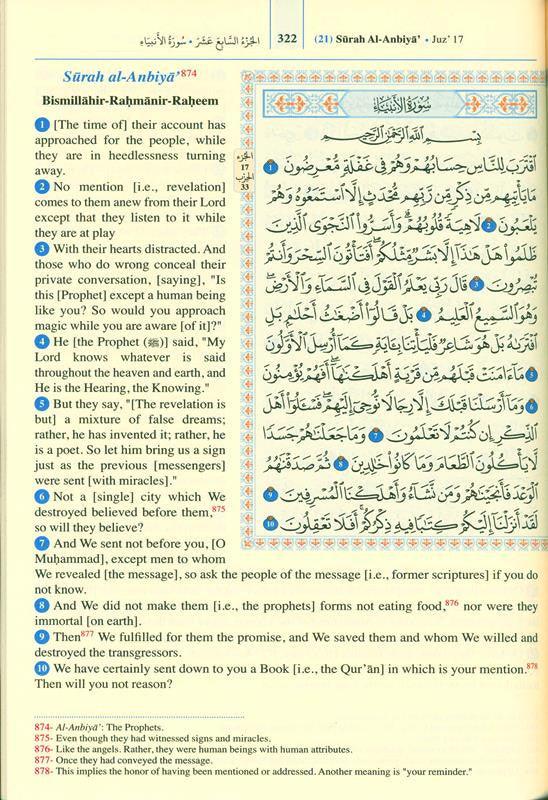 الجُزْءُ السَّابِعَ عَشَرَ • سُورَةُ الأَنبِيَاءِ
322
(21) Sūrah Al-Anbiyā' • Juz' 17
Sūrah al-Anbiyā'874
Bismillāhir-Raḥmānir-Raḥeem
1 [The time of] their account has
approached for the people, while
they are in heedlessness turning
away.
2 No mention [i.e., revelation]
comes to them anew from their Lord
except that they listen to it while
they are at play
3 With their hearts distracted. And
those who do wrong conceal their
private conversation, [saying], "Is
this [Prophet] except a human being
like you? So would you approach
magic while you are aware [of it]?"
4 He [the Prophet (ﷺ)] said, "My
Lord knows whatever is said
throughout the heaven and earth, and
He is the Hearing, the Knowing."
5 But they say, "[The revelation is
but] a mixture of false dreams;
rather, he has invented it; rather, he
is a poet. So let him bring us a sign
just as the previous [messengers]
were sent [with miracles]."
6 Not a [single] city which We
destroyed believed before them,875
so will they believe?
7 And We sent not before you, [O
Muḥammad], except men to whom
We revealed [the message], so ask the people of the message [i.e., former scriptures] if you do
not know.
8 And We did not make them [i.e., the prophets] forms not eating food,876 nor were they
immortal [on earth].
9 Then877 We fulfilled for them the promise, and We saved them and whom We willed and
destroyed the transgressors.
10 We have certainly sent down to you a Book [i.e., the Qur'ān] in which is your mention.878
Then will you not reason?
الجزء
17
الحزب
33
سُورَةُ الأَنبِيَاءِ
بِسْمِ ٱللَّهِ ٱلرَّحْمَٰنِ ٱلرَّحِيمِ
ٱقْتَرَبَ لِلنَّاسِ حِسَابُهُمْ وَهُمْ فِى غَفْلَةٍ مُّعْرِضُونَ 1
مَا يَأْتِيهِم مِّن ذِكْرٍ مِّن رَّبِّهِم مُّحْدَثٍ إِلَّا ٱسْتَمَعُوهُ وَهُمْ
يَلْعَبُونَ 2 لَاهِيَةً قُلُوبُهُمْ ۗ وَأَسَرُّوا۟ ٱلنَّجْوَى ٱلَّذِينَ
ظَلَمُوا۟ هَلْ هَٰذَآ إِلَّا بَشَرٌ مِّثْلُكُمْ ۖ أَفَتَأْتُونَ ٱلسِّحْرَ وَأَنتُمْ
تُبْصِرُونَ 3 قَالَ رَبِّى يَعْلَمُ ٱلْقَوْلَ فِى ٱلسَّمَآءِ وَٱلْأَرْضِ ۖ
وَهُوَ ٱلسَّمِيعُ ٱلْعَلِيمُ 4 بَلْ قَالُوٓا۟ أَضْغَٰثُ أَحْلَٰمٍ بَلِ
ٱفْتَرَىٰهُ بَلْ هُوَ شَاعِرٌ فَلْيَأْتِنَا بِـَٔايَةٍ كَمَآ أُرْسِلَ ٱلْأَوَّلُونَ
5 مَآ ءَامَنَتْ قَبْلَهُم مِّن قَرْيَةٍ أَهْلَكْنَٰهَآ ۖ أَفَهُمْ يُؤْمِنُونَ
6 وَمَآ أَرْسَلْنَا قَبْلَكَ إِلَّا رِجَالًا نُّوحِىٓ إِلَيْهِمْ ۖ فَسْـَٔلُوٓا۟ أَهْلَ
ٱلذِّكْرِ إِن كُنتُمْ لَا تَعْلَمُونَ 7 وَمَا جَعَلْنَٰهُمْ جَسَدًا
لَّا يَأْكُلُونَ ٱلطَّعَامَ وَمَا كَانُوا۟ خَٰلِدِينَ 8 ثُمَّ صَدَقْنَٰهُمُ
ٱلْوَعْدَ فَأَنجَيْنَٰهُمْ وَمَن نَّشَآءُ وَأَهْلَكْنَا ٱلْمُسْرِفِينَ 9
لَقَدْ أَنزَلْنَآ إِلَيْكُمْ كِتَٰبًا فِيهِ ذِكْرُكُمْ ۖ أَفَلَا تَعْقِلُونَ 10
874- Al-Anbiyā': The Prophets.
875- Even though they had witnessed signs and miracles.
876- Like the angels. Rather, they were human beings with human attributes.
877- Once they had conveyed the message.
878- This implies the honor of having been mentioned or addressed. Another meaning is "your reminder."